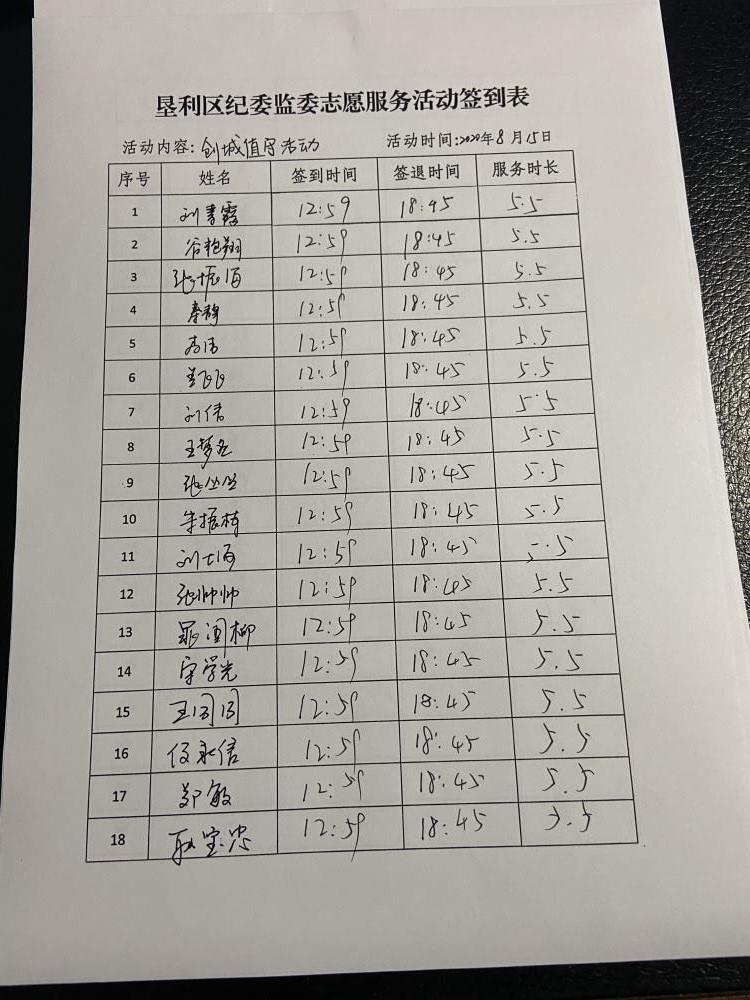 垦利区纪委监委志愿服务活动签到表
活动内容:创城值守活动 活动时间:2020年8月15日
序号 姓名 签到时间 签退时间 服务时长
1 刘书霞 12:59 18:45 5.5
2 谷艳翔 12:59 18:45 5.5
3 张振海 12:59 18:45 5.5
4 秦静 12:59 18:45 5.5
5 12:59 18:45 5.5
6 12:59 18:45 5.5
7 刘倩 12:59 18:45 5.5
8 王梦 12:59 18:45 5.5
9 张丛丛 12:59 18:45 5.5
10 朱振栋 12:59 18:45 5.5
11 刘七海 12:59 18:45 5.5
12 张帅帅 12:59 18:45 5.5
13 12:59 18:45 5.5
14 宋学光 12:59 18:45 5.5
15 王同同 12:59 18:45 5.5
16 任永信 12:59 18:45 5.5
17 郑敏 12:59 18:45 5.5
18 耿宝忠 12:59 18:45 5.5